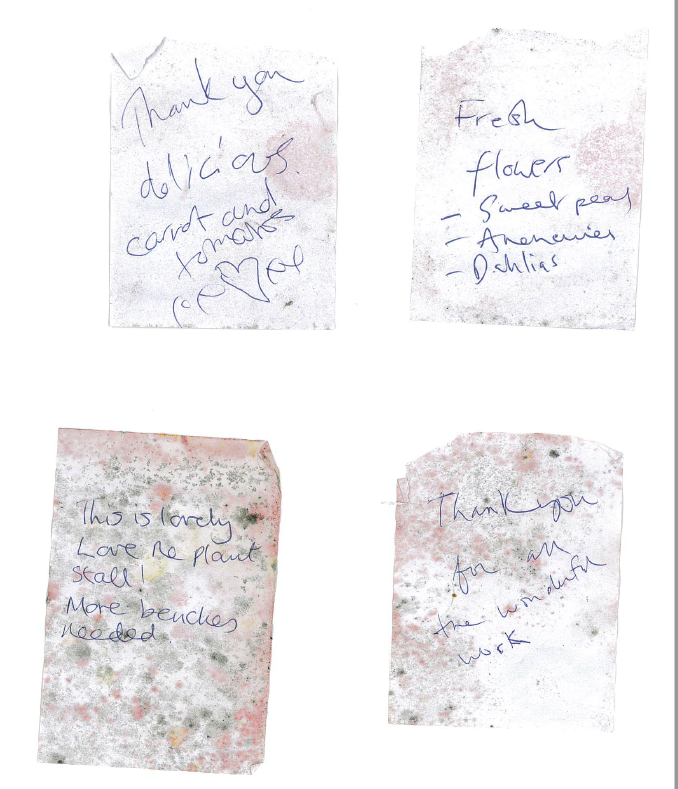 Thank you
delicious.
carrot and
tomatoes
Fresh
flowers
- Sweet peas
- Anenomies
- Dahlias
This is lovely
Love the plant
stall!
More benches
needed.
Thank you
for all
the wonderful
work